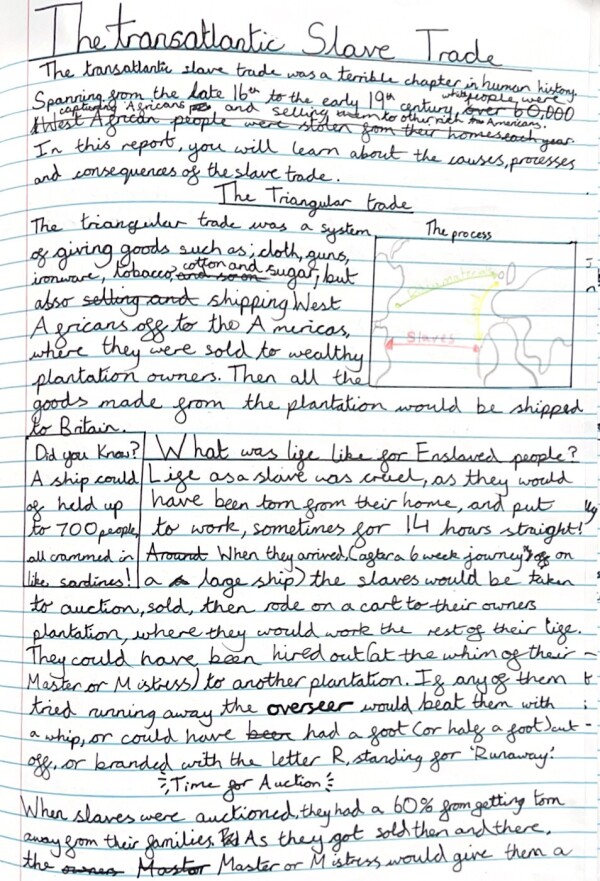 The transatlantic Slave Trade
The transatlantic slave trade was a terrible chapter in human history.
Spanning from the late 16th to the early 19th century, white people were over 60,000
capturing Africans and selling them to other rich Americans.
West African people were stolen from their homes each year.
In this report, you will learn about the causes, processes
and consequences of the slave trade.
The Triangular trade
The triangular trade was a system
of giving goods such as; cloth, guns,
ironware, tobacco, cotton and and so on sugar; but
also selling and shipping West
Africans off to the Americas,
where they were sold to wealthy
plantation owners. Then all the
goods made from the plantation would be shipped
to Britain.
The process
Slaves
Did you Know?
A ship could
of held up
to 700 people,
all crammed in
like sardines!
What was life like for Enslaved people?
Life as a slave was cruel, as they would
have been torn from their home, and put
to work, sometimes for 14 hours straight!
Around When they arrived, (after a 6 week journey on
a large ship) the slaves would be taken
to auction, sold, then rode on a cart to their owners
plantation, where they would work the rest of their life.
They could have been hired out (at the whim of their
Master or Mistress) to another plantation. If any of them
tried running away the overseer would beat them with
a whip, or could have been had a foot (or half a foot) cut
off, or branded with the letter R, standing for 'Runaway'.
Time for Auction
When slaves were auctioned, they had a 60% from getting torn
away from their families. As they got sold then and there,
the owner Master Master or Mistress would give them a